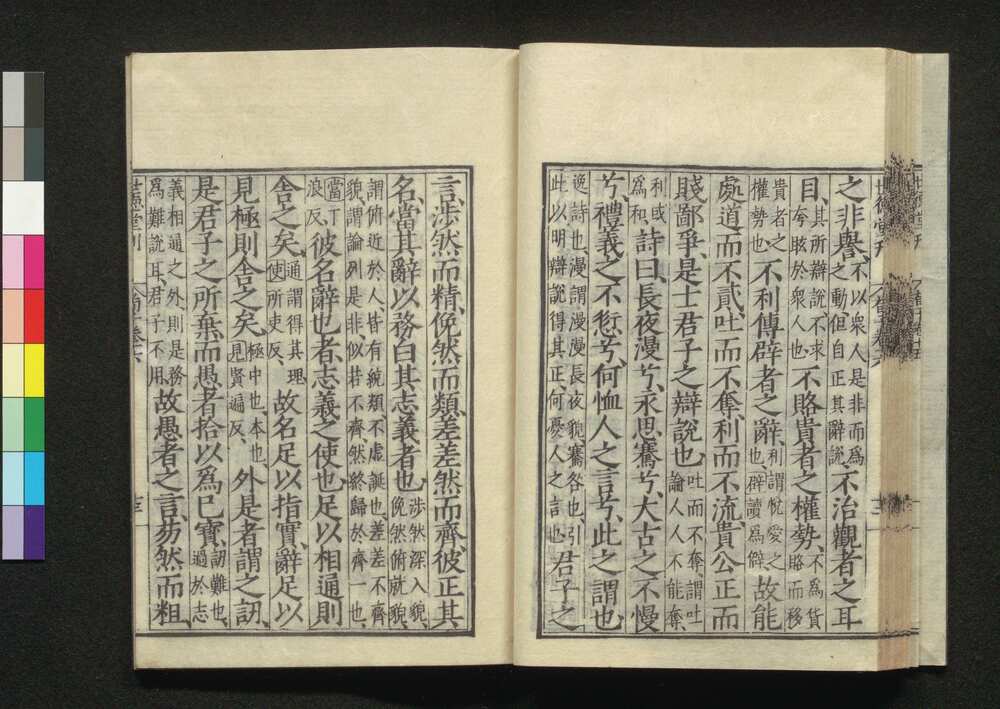 之非譽、不以衆人是非而爲之動但自正其辭說不治觀者之耳
目、其所辯說不求夸眩於衆人也不賂貴者之權勢、不爲貨賂而移
貴者之權勢也不利傳辟者之辭、利謂悅愛之也、辟讀爲僻故能
處道而不貳、吐而不奪、利而不流、貴公正而
賤鄙爭、是士君子之辯說也、吐而不奪、謂吐論人人不能奪、
利或爲和、詩曰、長夜漫兮、永思騫兮、大古之不慢
兮、禮義之不愆兮、何恤人之言兮、此之謂也、
逸詩也、漫謂漫漫長夜貌、騫咎也、引此以明辯說得其正、何憂人之言也君子之
言、涉然而精、俛然而類、差差然而齊、彼正其
名、當其辭、以務白其志義者也、涉然深入貌、俛然俯就貌、
謂俯近於人、皆有統類、不虛誕也、差差不齊貌、謂論列是非似若不齊、然終歸於齊一也、
當丁浪反、彼名辭也者、志義之使也、足以相通則
舍之矣、通謂得其理使所吏反、故名足以指實、辭足以
見極則舍之矣、極中也、本也、見賢遍反、外是者謂之訒、
是君子之所棄、而愚者拾以爲己寶、訒難也、過於志
義相通之外、則是務爲難說耳、君子不用、故愚者之言、芴然而粗、
世德堂刊
三